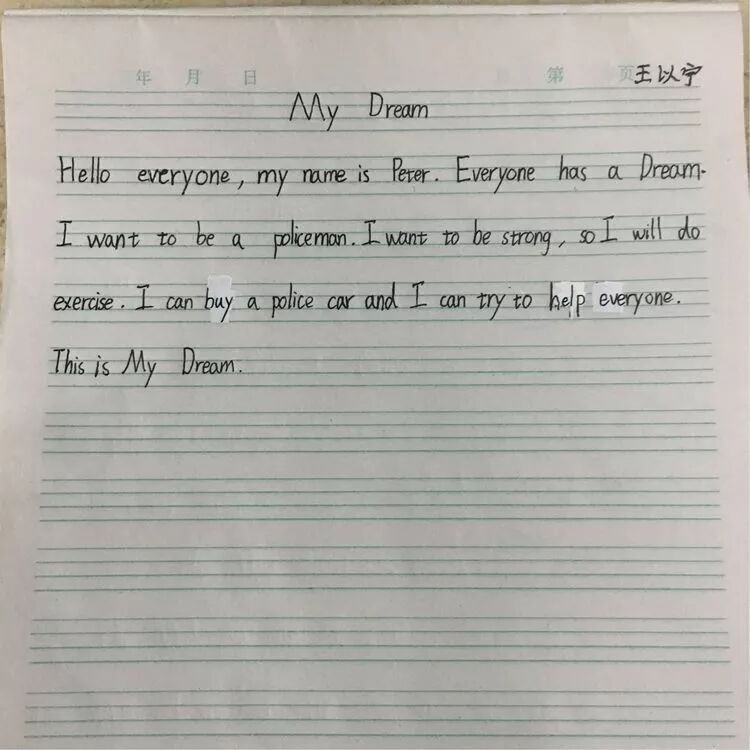 年 月 日 第 页 王以宁
My Dream
Hello everyone, my name is Peter. Everyone has a Dream.
I want to be a policeman. I want to be strong, so I will do
exercise. I can buy a police car and I can try to help everyone.
This is My Dream.